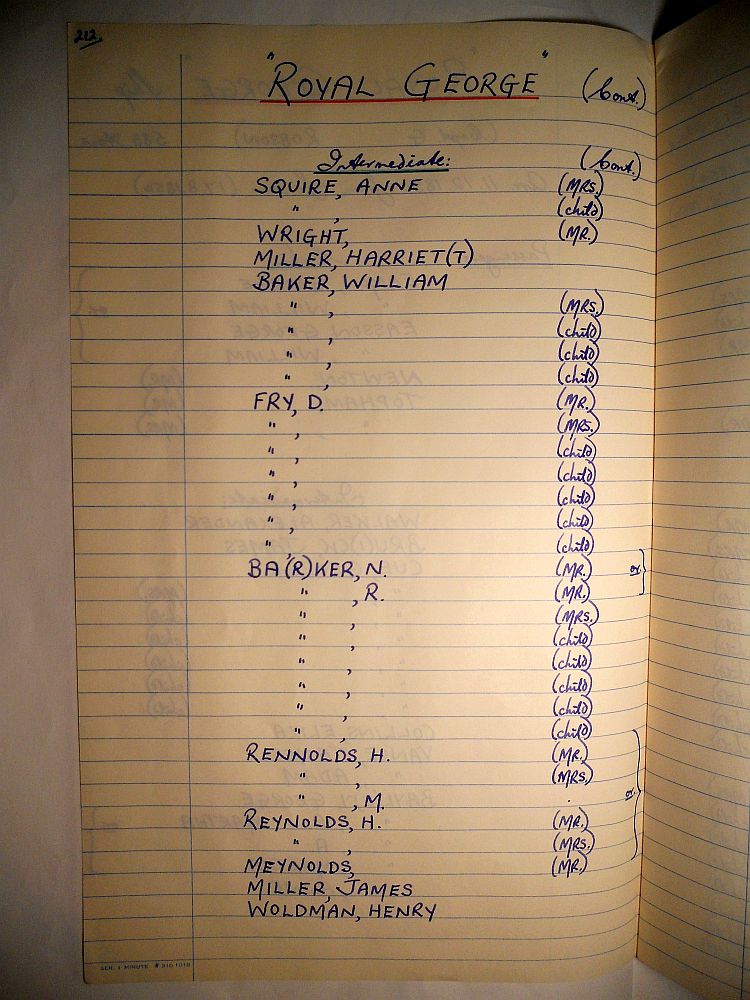 212.
"ROYAL GEORGE" (Cont.)
Intermediate: (Cont.)
SQUIRE, ANNE (MRS.)
" , (child)
WRIGHT, (MR.)
MILLER, HARRIET(T)
BAKER, WILLIAM
" , (MRS.)
" , (child)
" , (child)
" , (child)
FRY, D. (MR.)
" , (MRS.)
" , (child)
" , (child)
" , (child)
" , (child)
" , (child)
BA(R)KER, N. (MR.) or
" , R. (MR.)
" , (MRS.)
" , (child)
" , (child)
" , (child)
" , (child)
" , (child)
RENNOLDS, H. (MR.)
" , (MRS.)
" , M. or
REYNOLDS, H. (MR.)
" , (MRS.)
MEYNOLDS, (MR.)
MILLER, JAMES
WOLDMAN, HENRY